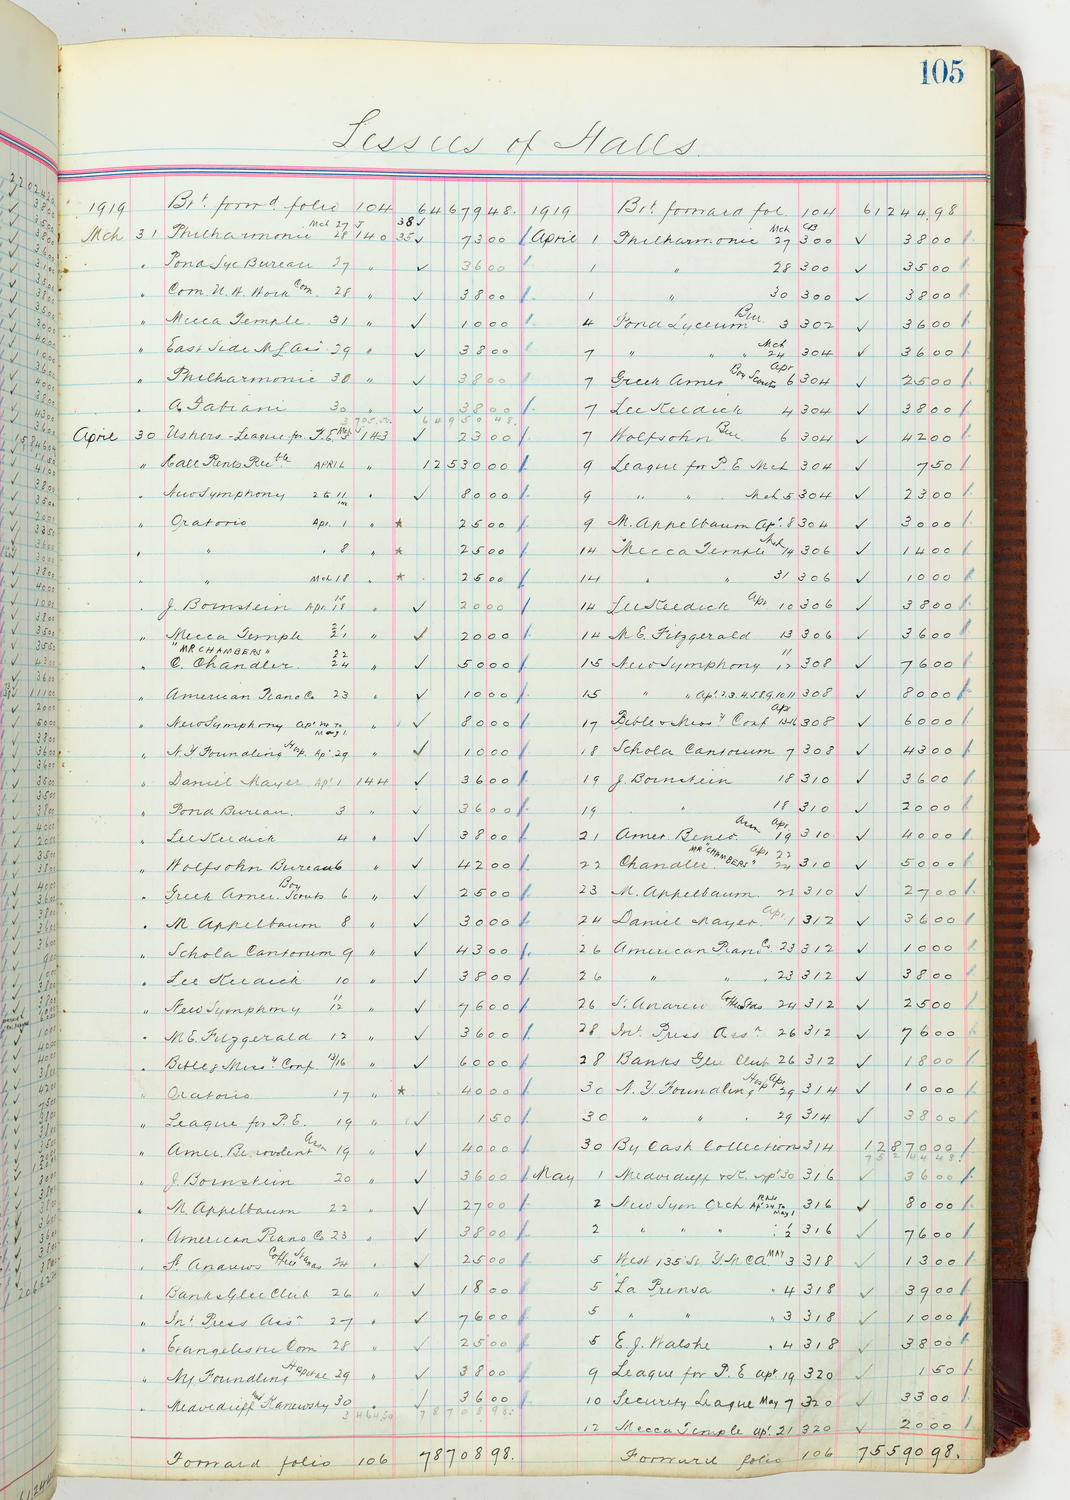 105
Lessees of Halls
1919 Brt. forwd. folio 104 6467948.
Mch 31 Philharmonic Mch 27 28 J 140 38 35 ✓ 7300
" Pond Lyc Bureau 27 " ✓ 3600
" Com. U. W. Work Com. 28 " ✓ 3800
" Mecca Temple 31 " ✓ 1000
" East Side 29 " ✓ 3800
" Philharmonic 30 " ✓ 3800
" A. Fabiani 30 " ✓ 3800
6495048.
April 30 Ushers-League for P.E. Mch 5 J 143 ✓ 2300
" Hall Rents Recble APRIL " 1253000
" New Symphony 2 to 11 " ✓ 8000
" Oratorio Apr. 1 " * 2500
" " " 8 " * 2500
" " Mch 18 " * 2500
" J. Bornstein Apr. 18 " ✓ 2000
" Mecca Temple 21 " ✓ 2000
" "MR CHAMBERS" C. Chandler 22 24 " ✓ 5000
" American Piano Co 23 " ✓ 1000
" New Symphony Apr. 24 to May 1. " ✓ 8000
" N.Y Foundling Hosp. Apr. 29 " ✓ 1000
" Daniel Mayer Apr. 1 144 ✓ 3600
" Pond Bureau. 3 " ✓ 3600
" Lee Keedick 4 " ✓ 3800
" Wolfsohn Bureau 6 " ✓ 4200
" Greek Amer. Boy Scouts 6 " ✓ 2500
" M. Appelbaum 8 " ✓ 3000
" Schola Cantorum 9 " ✓ 4300
" Lee Keedick 10 " ✓ 3800
" New Symphony 11 12 " ✓ 7600
" M.E. Fitzgerald 12 " ✓ 3600
" Bible & Missy Conf 13/16 " ✓ 6000
" Oratorio 17 " * 4000
" League for P.E. 19 " ✓ 150
" Amer. Benevolent Assn 19 " ✓ 4000
" J. Bornstein 20 " ✓ 3600
" M. Appelbaum 22 " ✓ 2700
" American Piano Co 23 " ✓ 3800
" St. Andrews Coffee Stands 24 " ✓ 2500
" Banks Glee Club 26 " ✓ 1800
" Int Press Assn 27 " ✓ 7600
" Evangelistic Com 28 " ✓ 2500
" NY Foundling Hospital 29 " ✓ 3800
" Medvedieff & Kanewsky 30 " ✓ 3600
3464.50 7870898.
Forward folio 106 7870898.
1919 Brt. forward fol. 104 6124498
April 1 Philharmonic Mch 27 CB 300 ✓ 3800
1 " 28 300 ✓ 3500
1 " 30 300 ✓ 3800
4 Pond Lyceum Bur. 3 302 ✓ 3600
7 " " " Mch 24 304 ✓ 3600
7 Greek Amer Boy Scouts Apr 6 304 ✓ 2500
7 Lee Keedick 4 304 ✓ 3800
7 Wolfsohn Bur 6 304 ✓ 4200
9 League for P E Mch 304 ✓ 750
9 " " " Mch 5 304 ✓ 2300
9 M. Appelbaum Apr. 8 304 ✓ 3000
14 Mecca Temple Mch 14 306 ✓ 1400
14 " " 31 306 ✓ 1000
14 Lee Keedick Apr 10 306 ✓ 3800
14 M.E. Fitzgerald 13 306 ✓ 3600
15 New Symphony 11 12 308 ✓ 7600
15 " " Apr. 2.3.4.5.8.9.10.11 308 ✓ 8000
17 Bible & Missy Conf Apr 13-16 308 ✓ 6000
18 Schola Cantorum 7 308 ✓ 4300
19 J. Bornstein 18 310 ✓ 3600
19 " 18 310 ✓ 2000
21 Amer. Benev. Assn Apr. 19 310 ✓ 4000
22 Chandler "MR CHAMBERS" Apr 22 24 310 ✓ 5000
23 M. Appelbaum 22 310 ✓ 2700
24 Daniel Mayer Apr. 1 312 ✓ 3600
26 American Piano Co. 23 312 ✓ 1000
26 " " " 23 312 ✓ 3800
26 St. Andrew Coffee Stas 24 312 ✓ 2500
28 Int. Press Assn 26 312 ✓ 7600
28 Banks Glee Club 26 312 ✓ 1800
30 N.Y Foundling Hosp Apr 29 314 ✓ 1000
30 " " " 29 314 ✓ 3800
30 By Cash Collections 314 1287000
7524448.
May 1 Medvedieff & K. Apr 30 316 ✓ 3600
2 New Sym Orch Rhs Apr. 24 to May 1 316 ✓ 8000
2 " " " 1 2 316 ✓ 7600
5 West 135 St Y.M.C.A. MAY 3 318 ✓ 1300
5 La Prensa " 4 318 ✓ 3900
5 " " " 3 318 ✓ 1000
5 E.J. Walshe " 4 318 ✓ 3800
9 League for P. E Apr. 19 320 ✓ 150
10 Security League May 7 320 ✓ 3300
12 Mecca Temple Apr. 21 320 ✓ 2000
Forward folio 106 7559098.